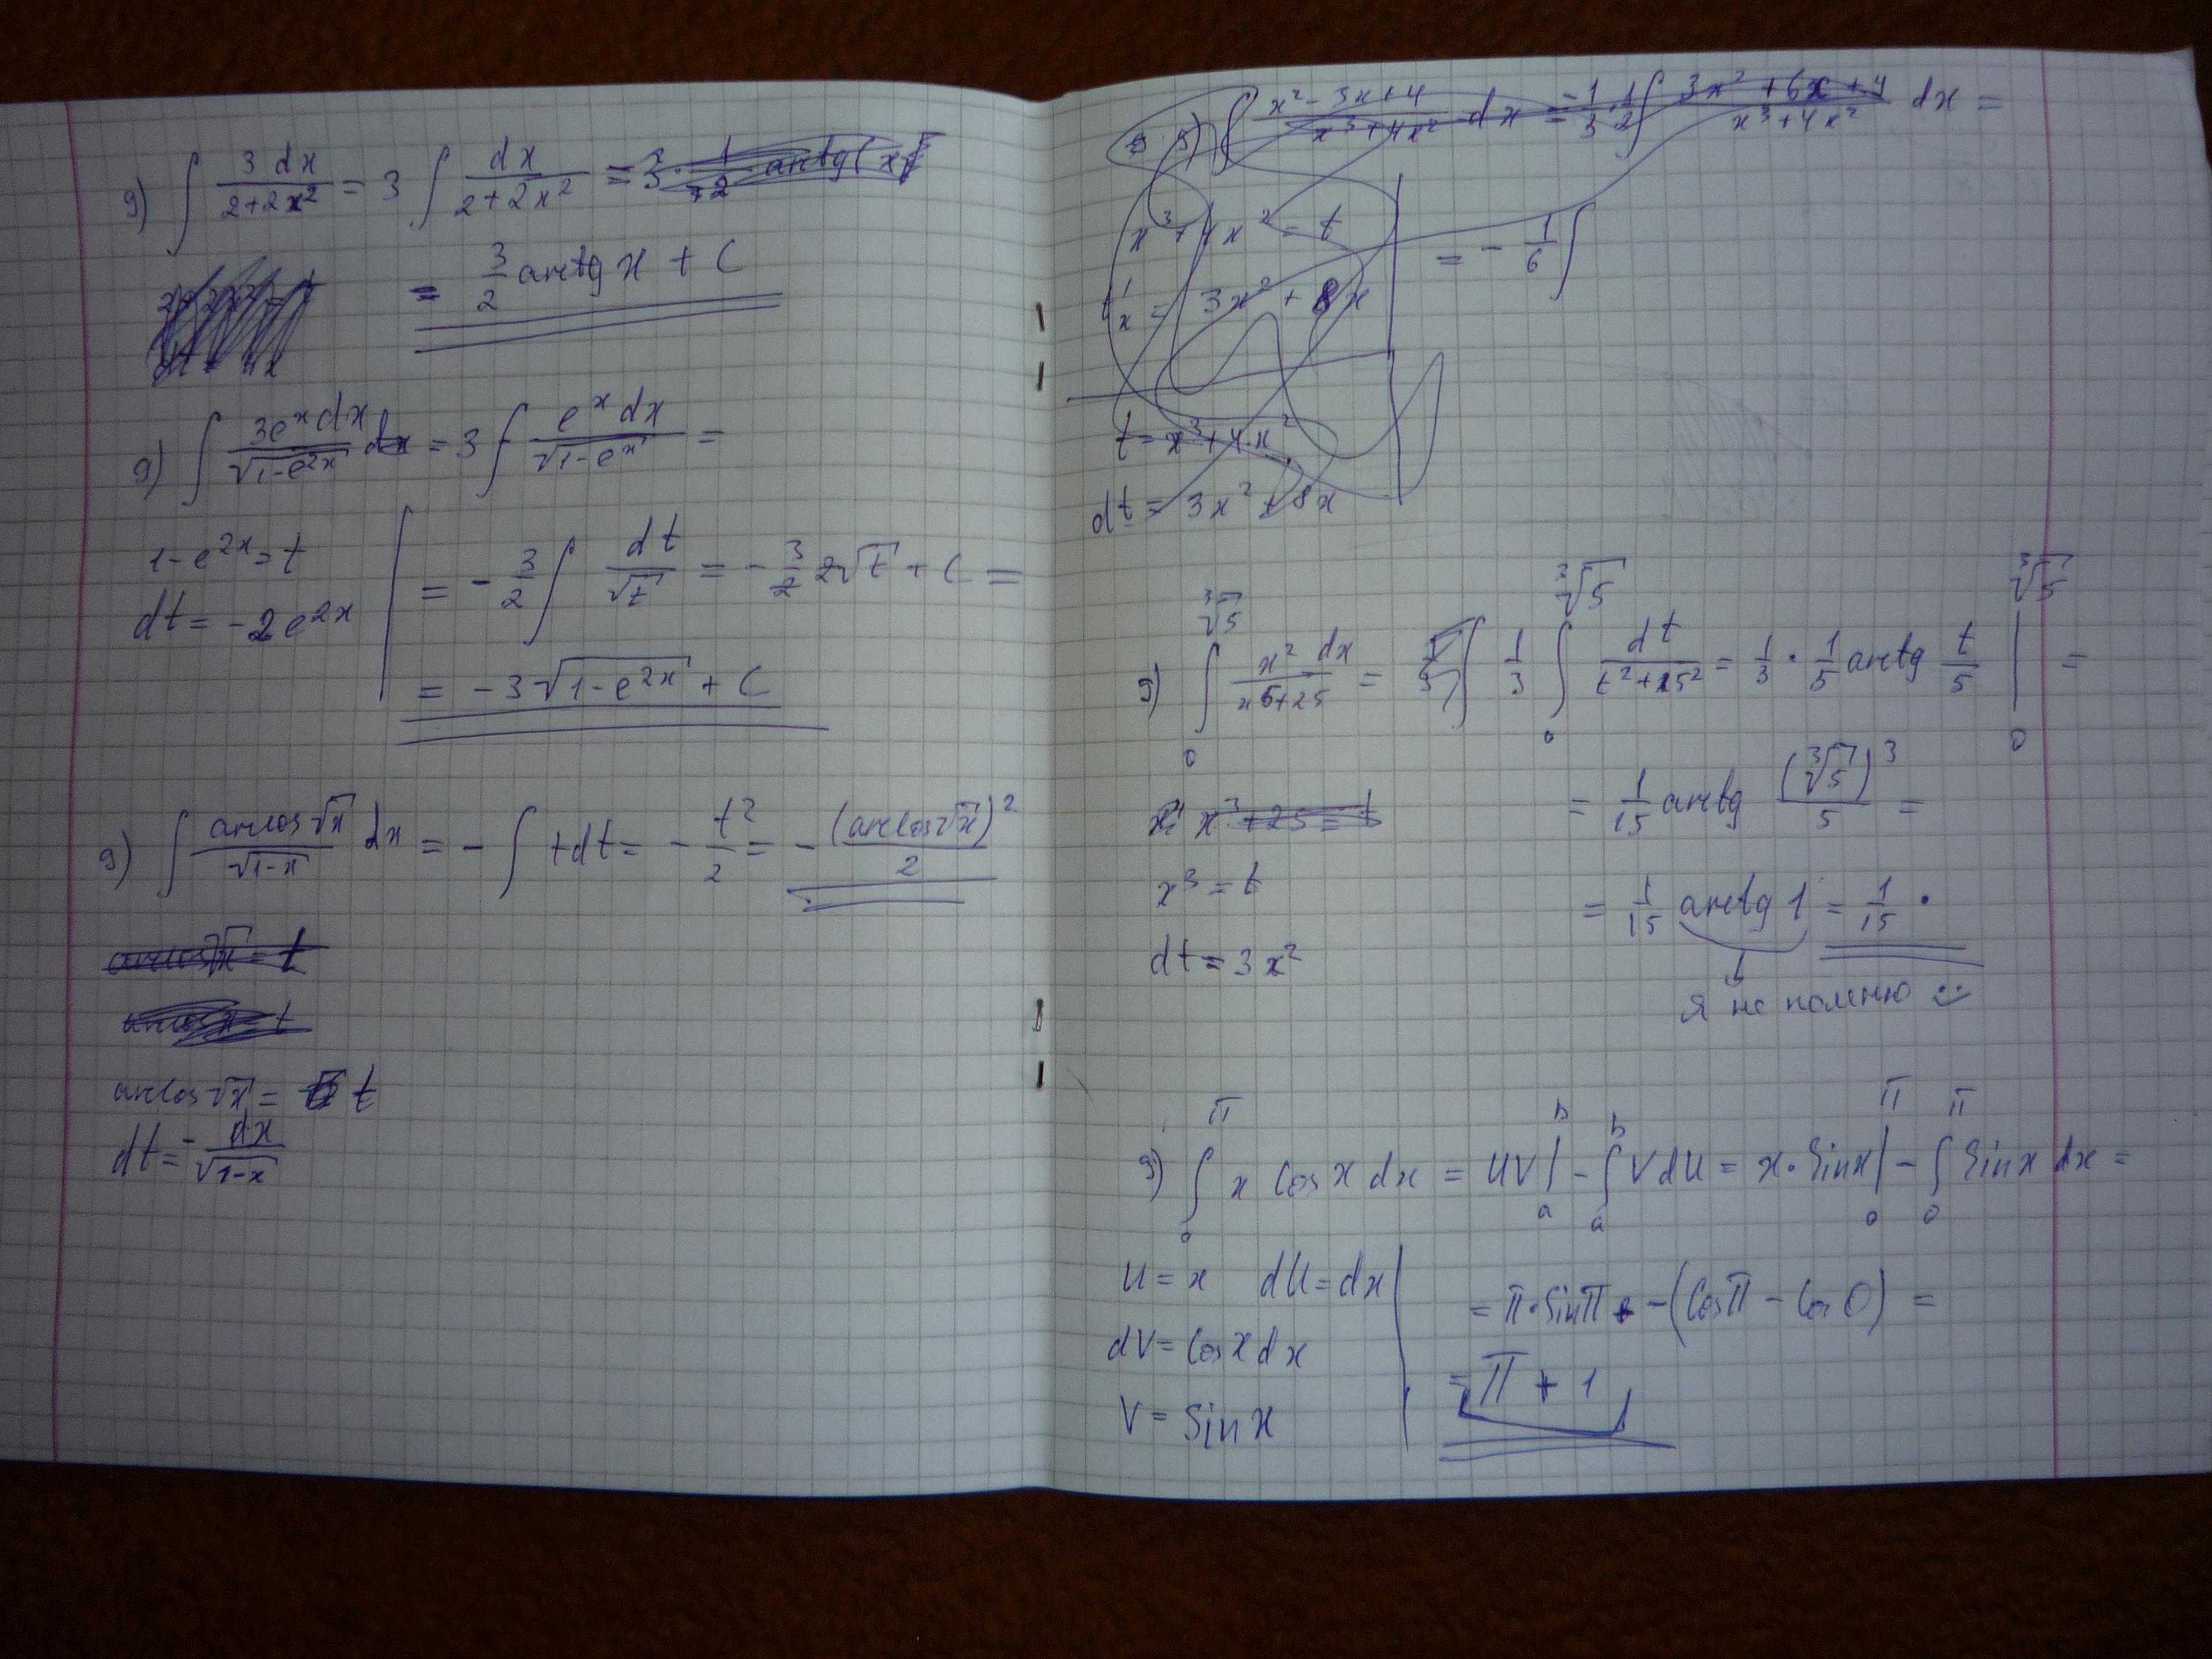 9) ∫ 3 dx / 2+2x² = 3 ∫ dx / 2+2x² = 3 · 1/2 arctg(x)
= 3/2 arctg x + C
9) ∫ 3eˣdx / √1-e²ˣ dx = 3 ∫ eˣ dx / √1-eˣ =
1-e²ˣ = t
dt = -2e²ˣ
= - 3/2 ∫ dt / √t = - 3/2 2√t + C =
= -3√1-e²ˣ + C
9) ∫ arccos√x / √1-x dx = - ∫ t dt = - t²/2 = - (arccos√x)² / 2
arccos√x = t
arccosx = t
arccos√x = t
dt = - dx / √1-x
5) ∫ x²-3x+4 / x³+4x² dx = -1/3 · 1/2 ∫ 3x²+6x+4 / x³+4x² dx =
x³+4x² = t
t'ₓ = 3x²+8x
= - 1/6 ∫
t = x³+4x²
dt = 3x²+8x
5) ∫₀^∛5 x² dx / x6+25 = 1/3 ∫ 1/3 ∫₀^∛5 dt / t²+5² = 1/3 · 1/5 arctg t/5 |₀^∛5 =
x³+25 = t
x³ = t
dt = 3x²
= 1/15 arctg (∛5)³ / 5 =
= 1/15 arctg 1 = 1/15 ·
я не помню
9) ∫₀^π x cos x dx = UV|ₐᵇ - ∫ₐᵇ VdU = x·Sinx|₀^π - ∫₀^π Sinx dx =
U = x dU = dx
dV = Cosx dx
V = Sin x
= π·Sinπ - (Cosπ - Cos 0) =
= π + 1